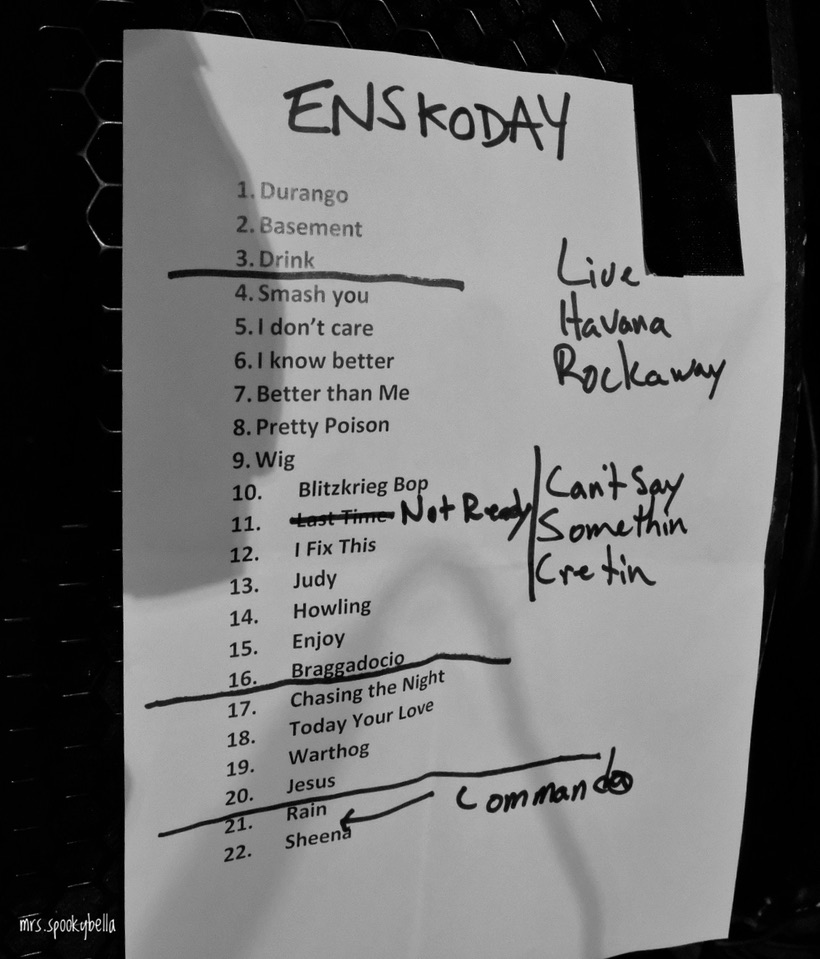 ENSKODAY
1. Durango
2. Basement
3. Drink
4. Smash you
5. I don't care
6. I know better
7. Better than Me
8. Pretty Poison
9. Wig
10. Blitzkrieg Bop
11. Last Time Not Ready
12. I Fix This
13. Judy
14. Howling
15. Enjoy
16. Braggadocio
17. Chasing the Night
18. Today Your Love
19. Warthog
20. Jesus
21. Rain
22. Sheena
Commando
Live
Havana
Rockaway
Can't Say
Somethin
Cretin
mrs.spookybella